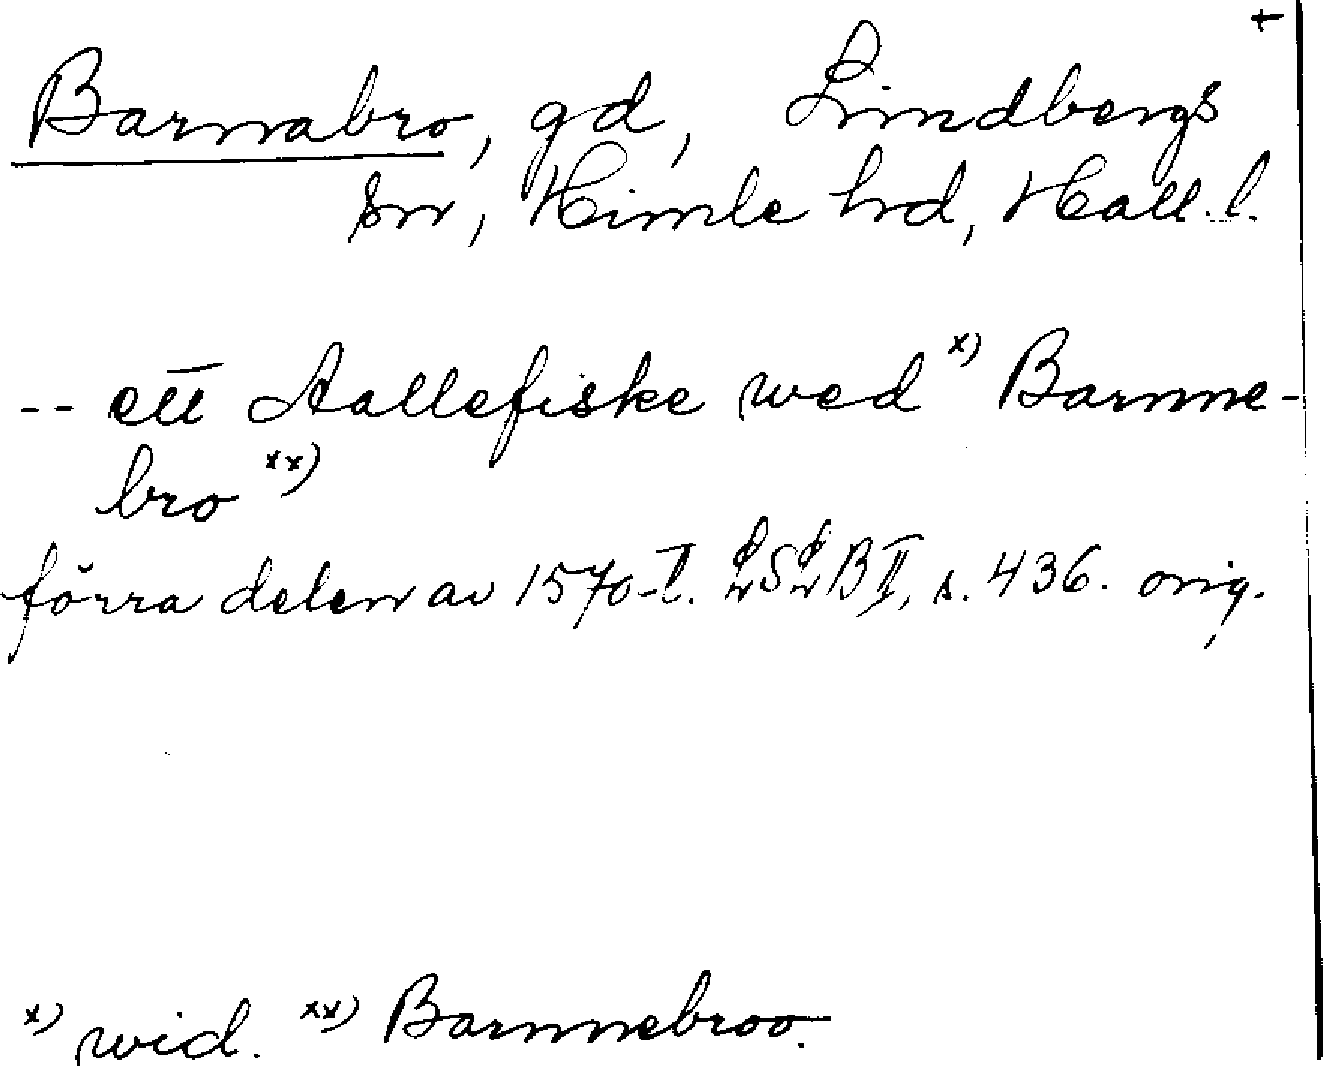 +
Barnabro, gd, Lindbergs
sn, Himle hd, Hall. l.
-- ett Aallefiske wed x) Barnne-
bro xx)
förra delen av 1570-t. LSLB II, s. 436. orig.
x) wid. xx) Barnnebroo.